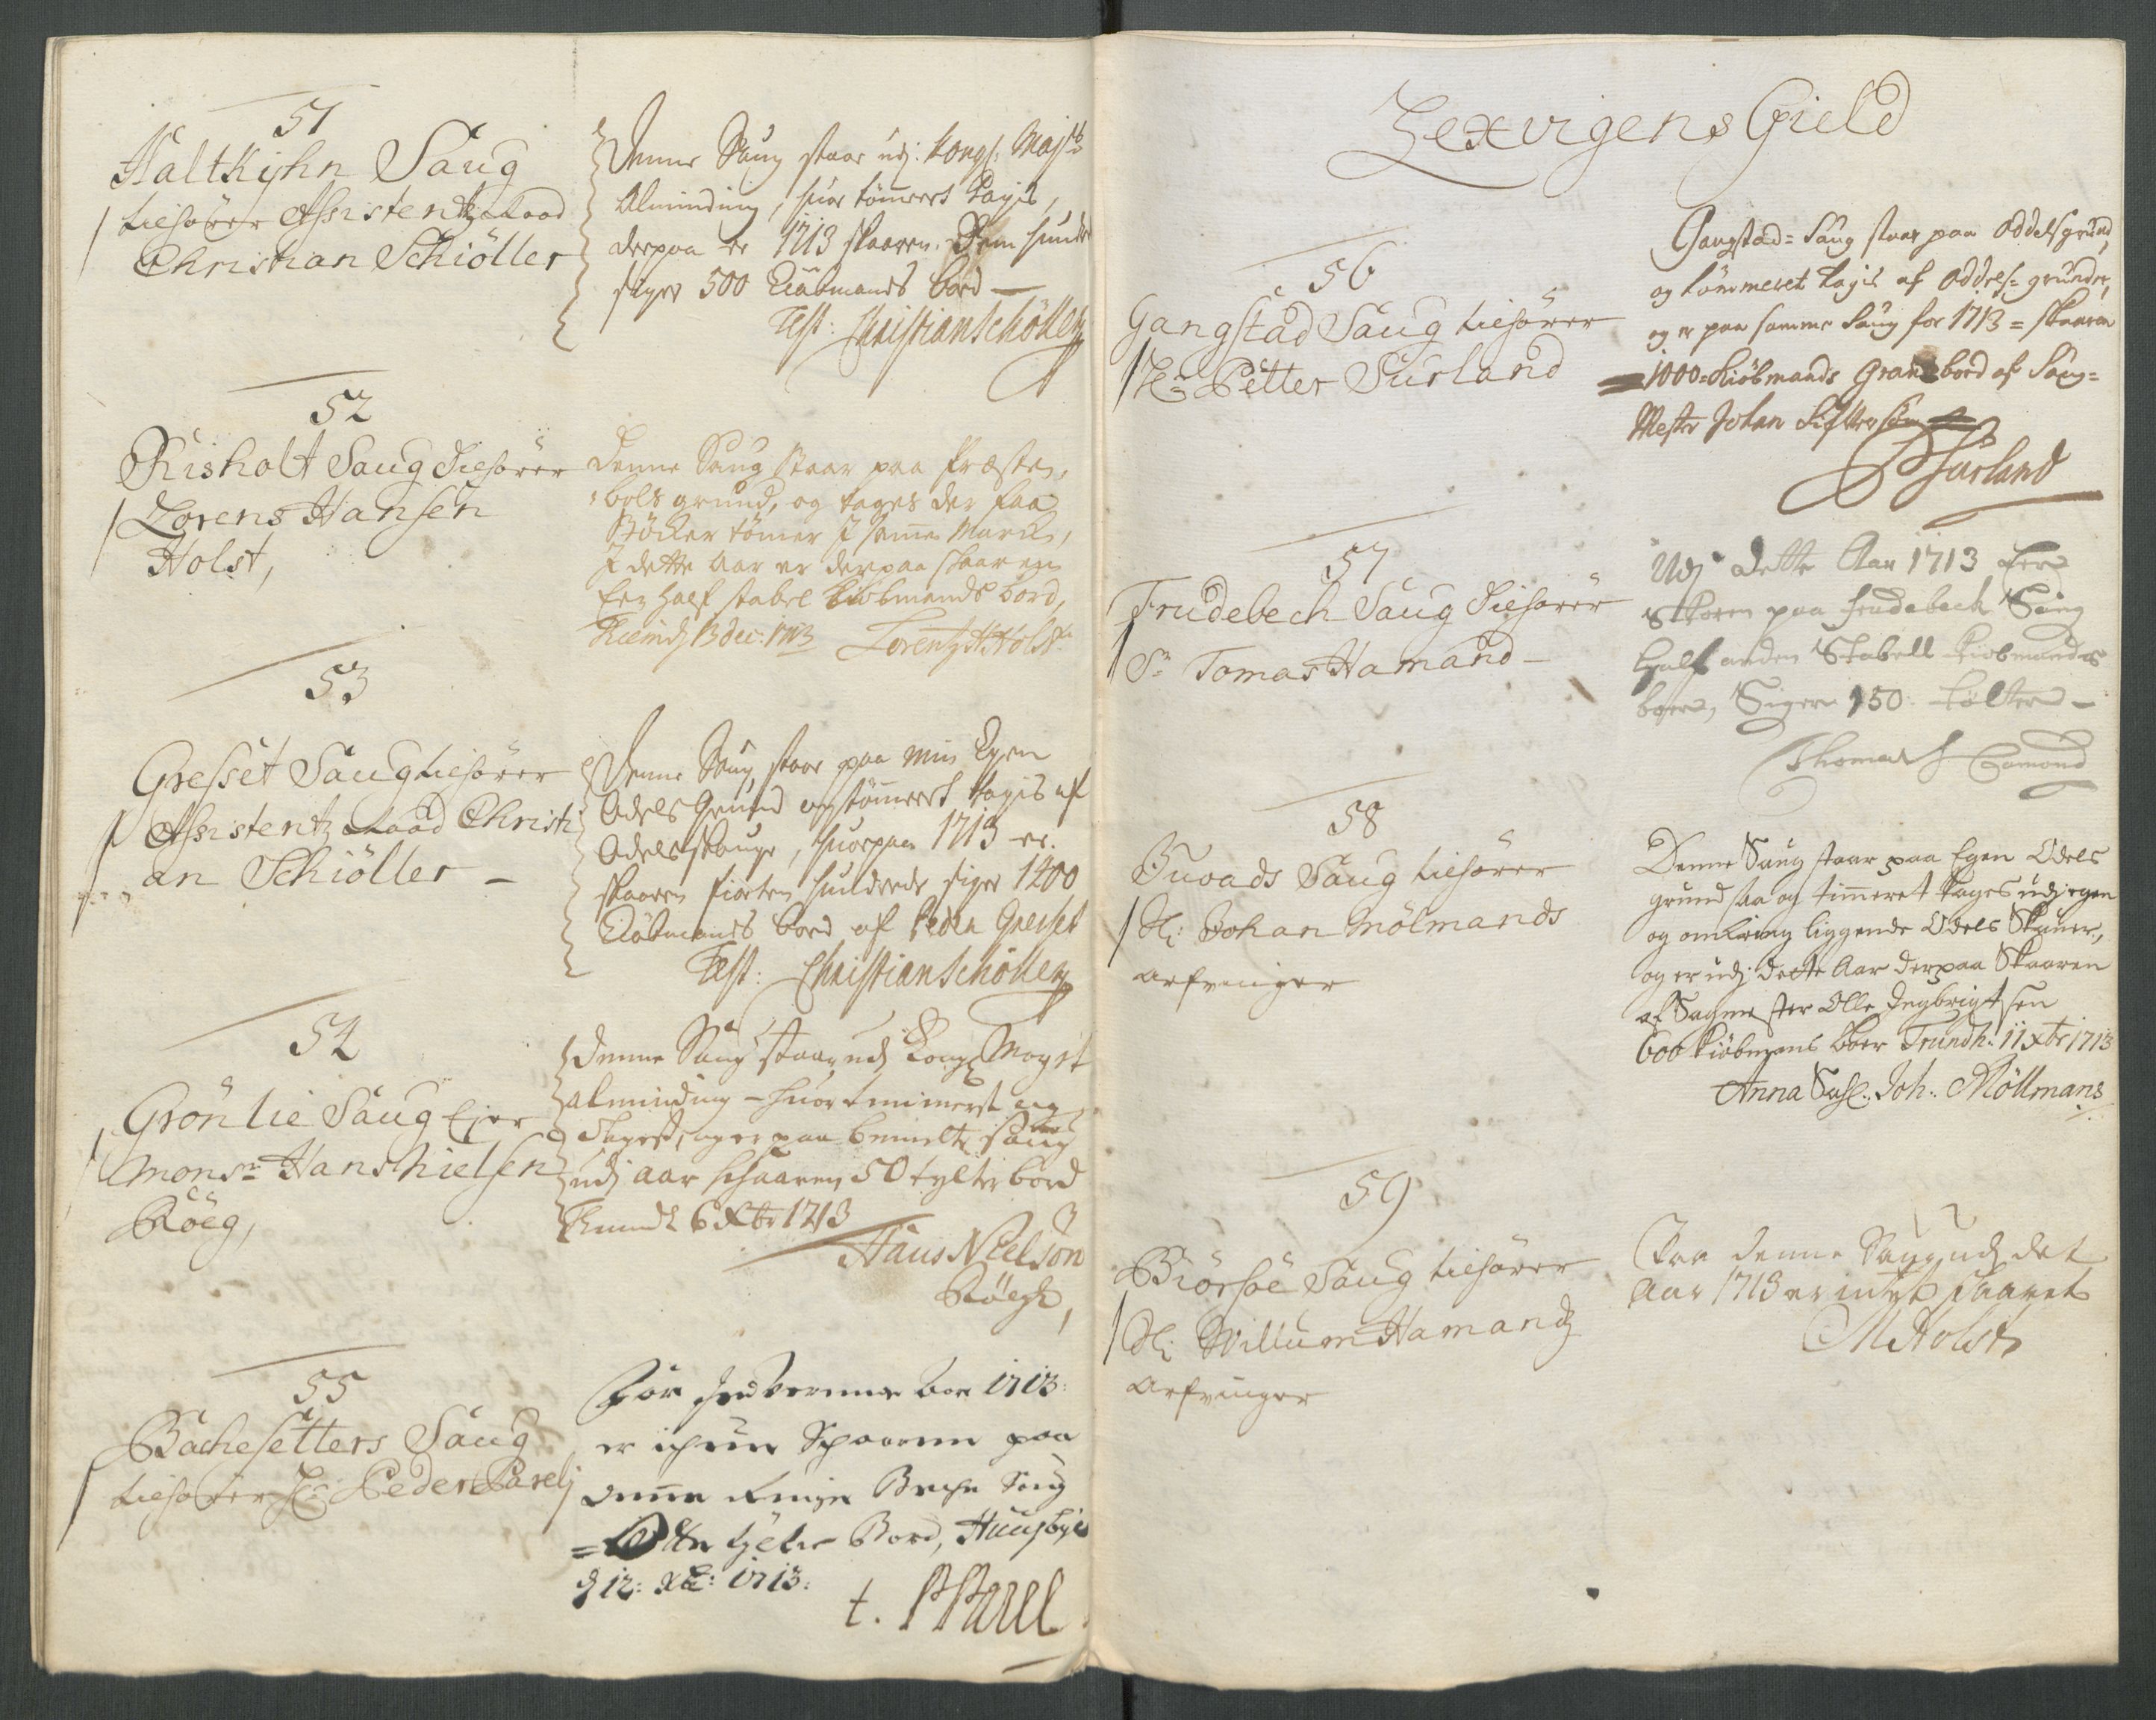 51
Haltkijhn Saug
tilhører Assistentz Raad
Christian Schiöller
Denne Saug staar udj. Kongl: Majsts
Alminding, huor tömert tagis,
derpaa er 1713 skaaren Fem hundr
siger 500 Kiöbmands bord —
Test: Christian Schöller
52
Risholt Saug Tilhörer
Lorens Hansen
Holst,
Denne Saug staar paa Præste,
bols grund, og tages der faa
Stöcker tömer I samme March,
I dette Aar er derpaa skaaren
Een half stabel Kiöbmands bord,
13 dec: 1713 Lorentz H Holst
53
Gresset Saug tilhörer
Assistentz Raad Christi
an Schiöller —
Denne Saug staar paa min Egen
Odels Grund og tömert tagis af
Odels skauge, huorpaa 1713 er
skaaren fiorten hundrede siger 1400
Kiöbmands bord af Peder Gresset
Test: Christian Schöller
54
Grön lie Saug Ejer
Monsr Hans Nielsen
Röeg,
Denne Saug staar udj Kongl Mayst
alminding — huor timmerst og
Tages, og er paa bemelte saug
udj aar schaaren 50 tylter bord
6 Xbr 1713
Hans Nielsön
Röegh,
55
Bachesetters Saug
tilhörer Hr Peder Parelj
For indeverende Aar 1713:
er ichun Schaaren paa
denne ringe Beche Saug
= Otte tylter Bord, Huusbye
d 12: Xb: 1713:
t. PParel
Lexvigens Gield
56
Gangstad Saug tilhörer
Hr Petter Surland
Gangstad = Saug staar paa Oddelsgrund,
og tömmeret tagis af Oddels = grunder,
og er paa samme Saug for 1713 = skaaren
1000 = Kiöbmands Grane bord af Saug =
Mester Johan
PSurland
57
Frudebech Saug Tilhörer
Sr Tomas Hamand —
Udj dette Aar 1713 Er
Skoren paa frudebech Saug
Half anden Stabell Kiöbmands
boer, Siger 150 tölter —
Thomas Hamond
58
Buvads Saug tilhörer
Sl: Johan Mölmands
arfvinger
Denne Saug staar paa Egen Odels
grund saa og timmeret tages udj egen
og omkring liggende Odels Skauer,
og er udj dette Aar derpaa Skaaren
af Saugmester Olle Ingbrigtsen
600 kiöbmans boer Trundh: 11 Xbr 1713
Anna Sahl. Joh: Möllmans
59
Biörsöe Saug tilhörer
Sl: Willum Hamandz
arfvinger
Paa denne Saug udj det
Aar 1713 er intet skaaret
M Holst